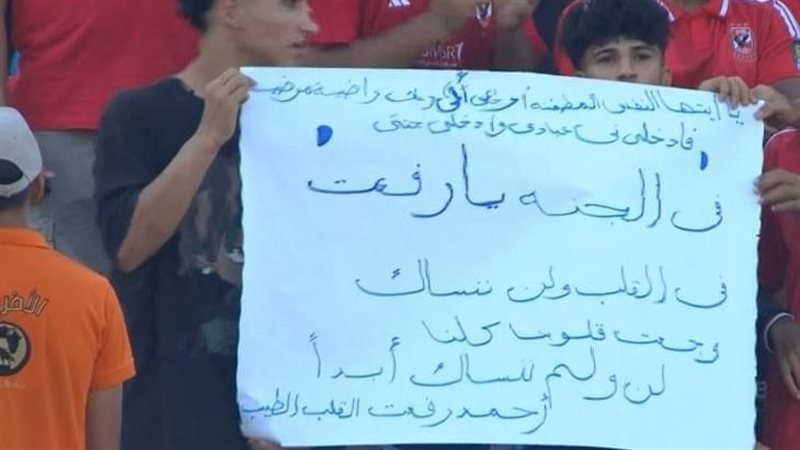 يا أيتها النفس المطمئنة أرجعى ألى ربك راضية مرضية
فادخلى فى عبادى وادخلى جنتى
فى الجنه يا رفعت
فى القلب ولن ننساك
وجعت قلوبنا كلنا
لن ولم ننساك أبداً
أحمد رفعت القلب الطيب